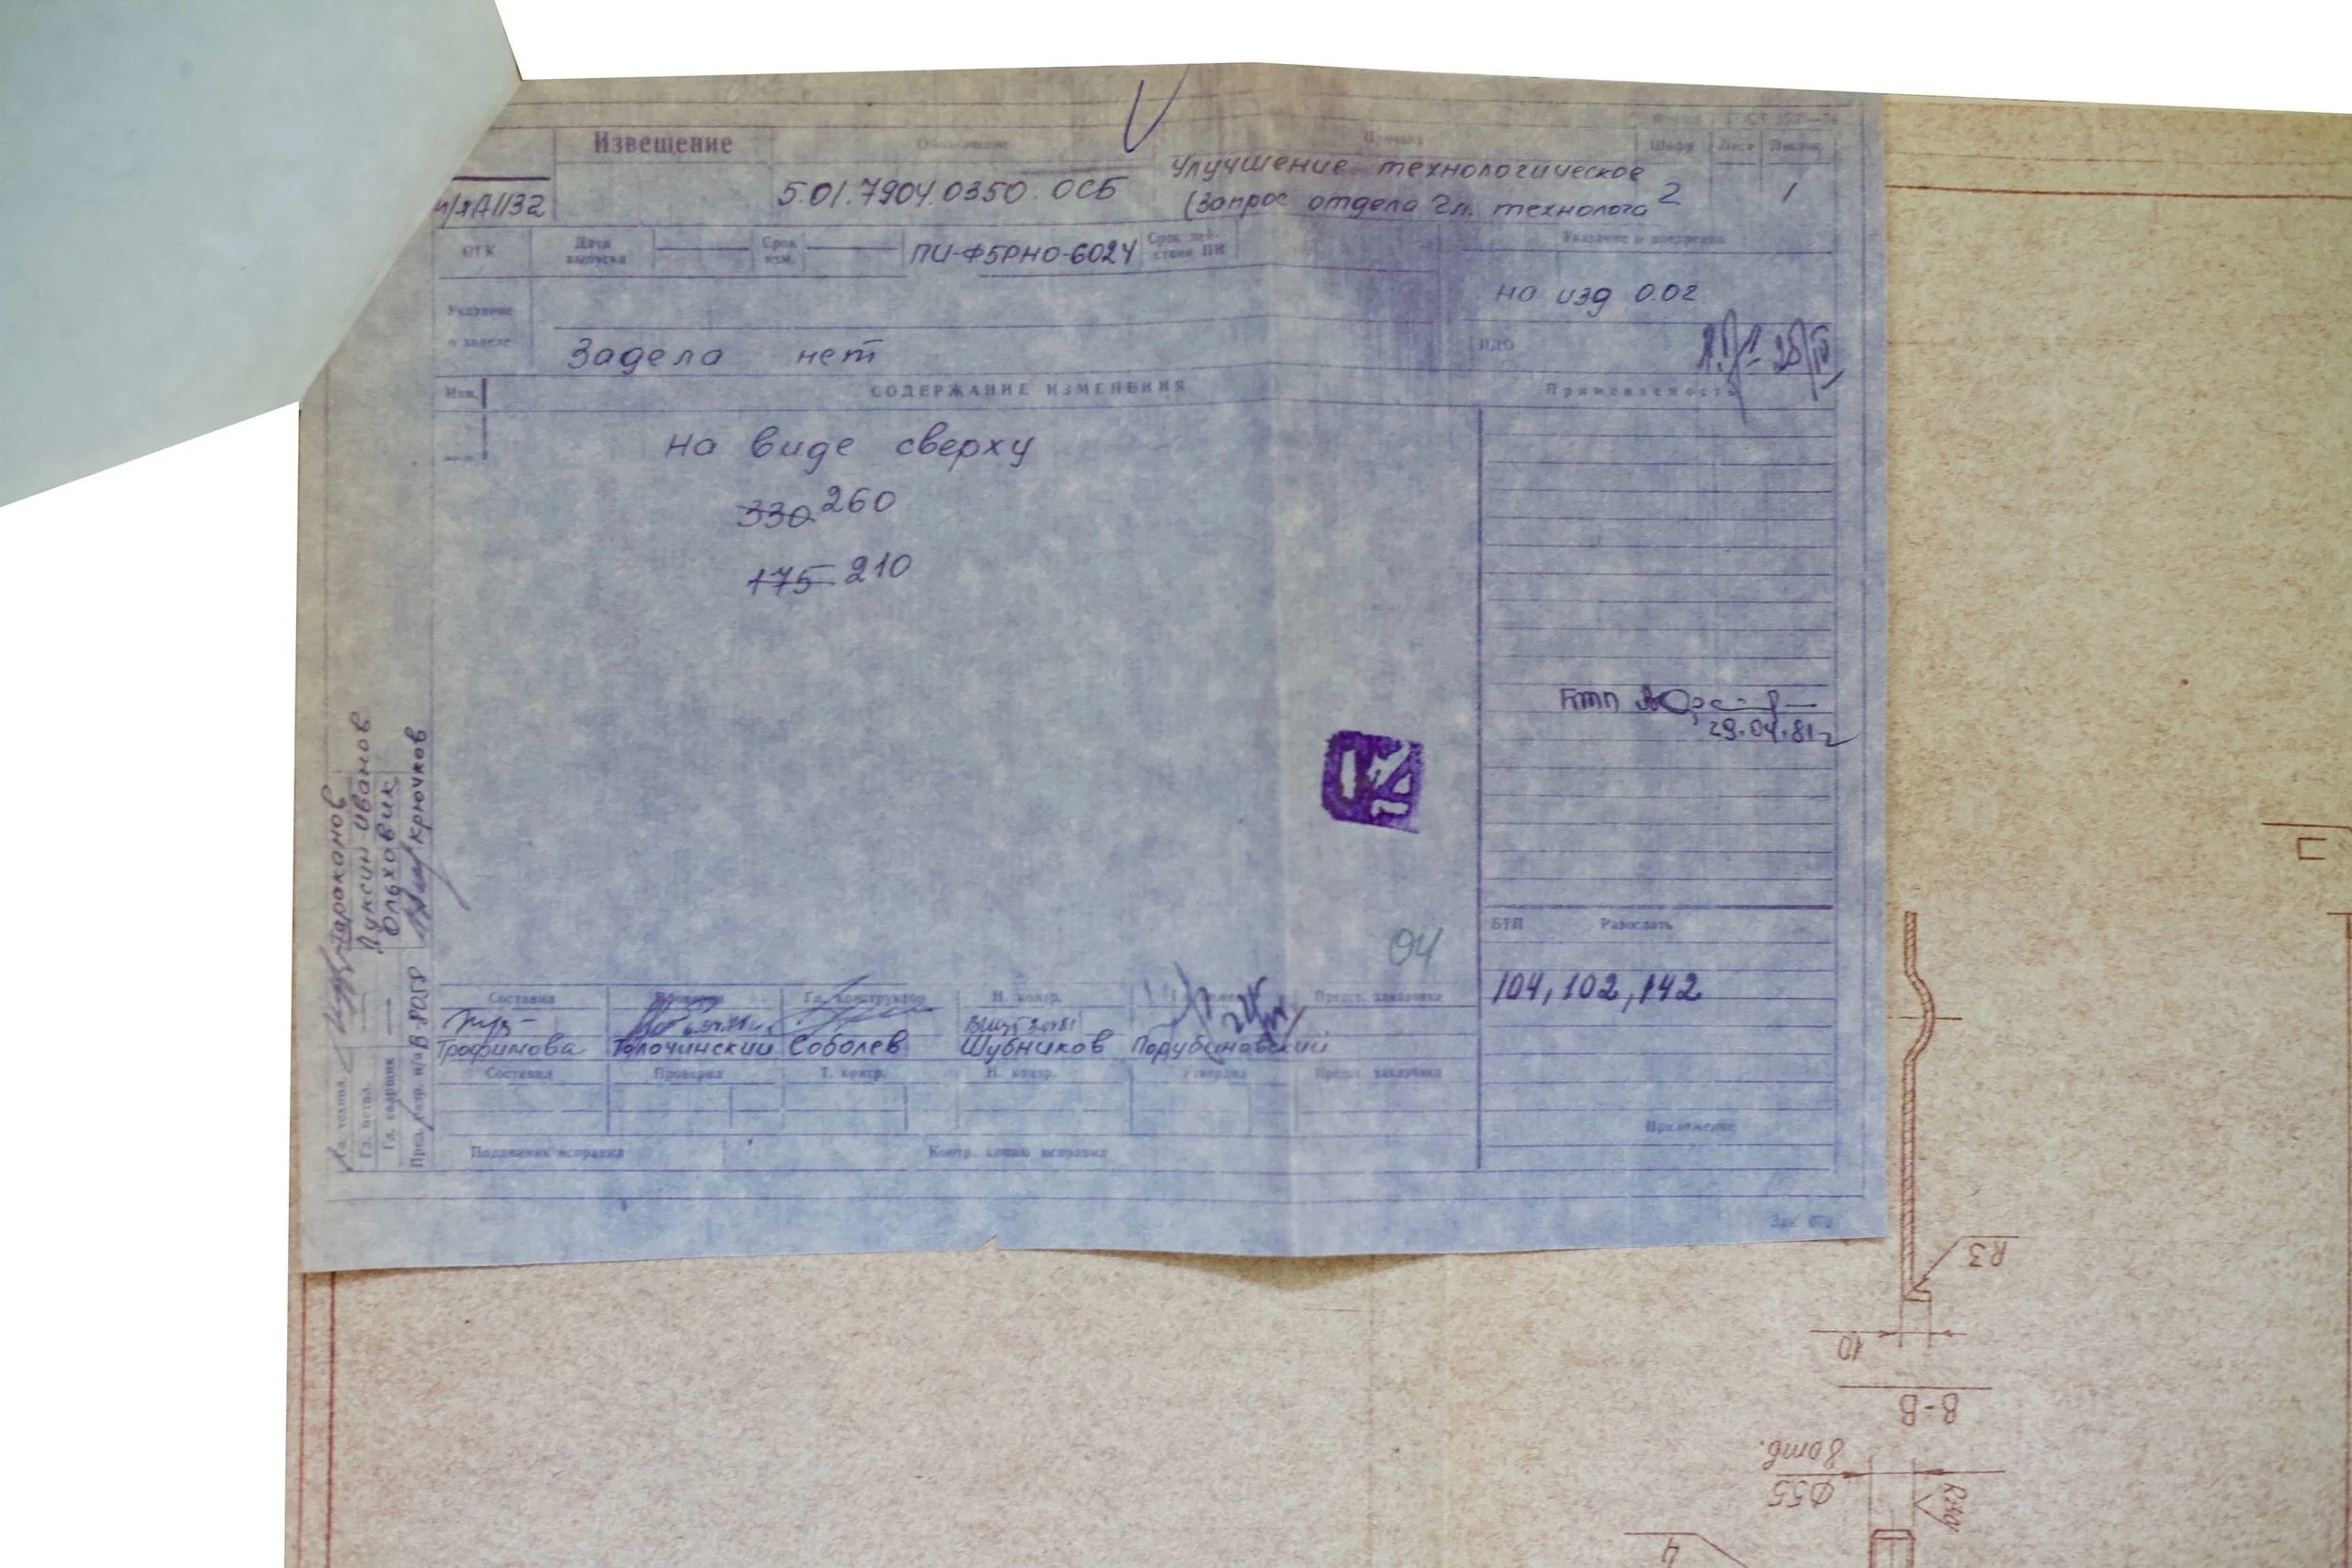 Извещение
Обозначение
Причина
Шифр Лист Листов
п/я А1132
5.01.7904.0350.0СБ
Улучшение технологическое
(Запрос отдела гл. технолога
2
1
ОТК
Дата выпуска
Срок изм.
ПИ-Ф5РНО-6024
Срок дей-
ствия ПИ
Указание о внедрении
на изд 0.02
Указание
о заделе
Задела нет
ПДО
Изм.
СОДЕРЖАНИЕ ИЗМЕНЕНИЯ
Применяемость
на виде сверху
330 260
175 210
29.04.81г
04
БТП
Разослать
104, 102, 142
Составил
Проверил
Гл. конструктор
Н. контр.
Предст. заказчика
Трофимова
Толочинский
Соболев
Шубников
Порубиновский
Составил
Проверил
Т. контр.
Н. контр.
Утвердил
Предст. заказчика
Приложение
Подлинник исправил
Контр. копию исправил
Гл. технол.
Тараканов
Гл. метал.
Луксин-Иванов
Гл. сварщик
Ольховик
Крючков
П
R3
10
В-В
8 отв.
Ø55
Rz40
4